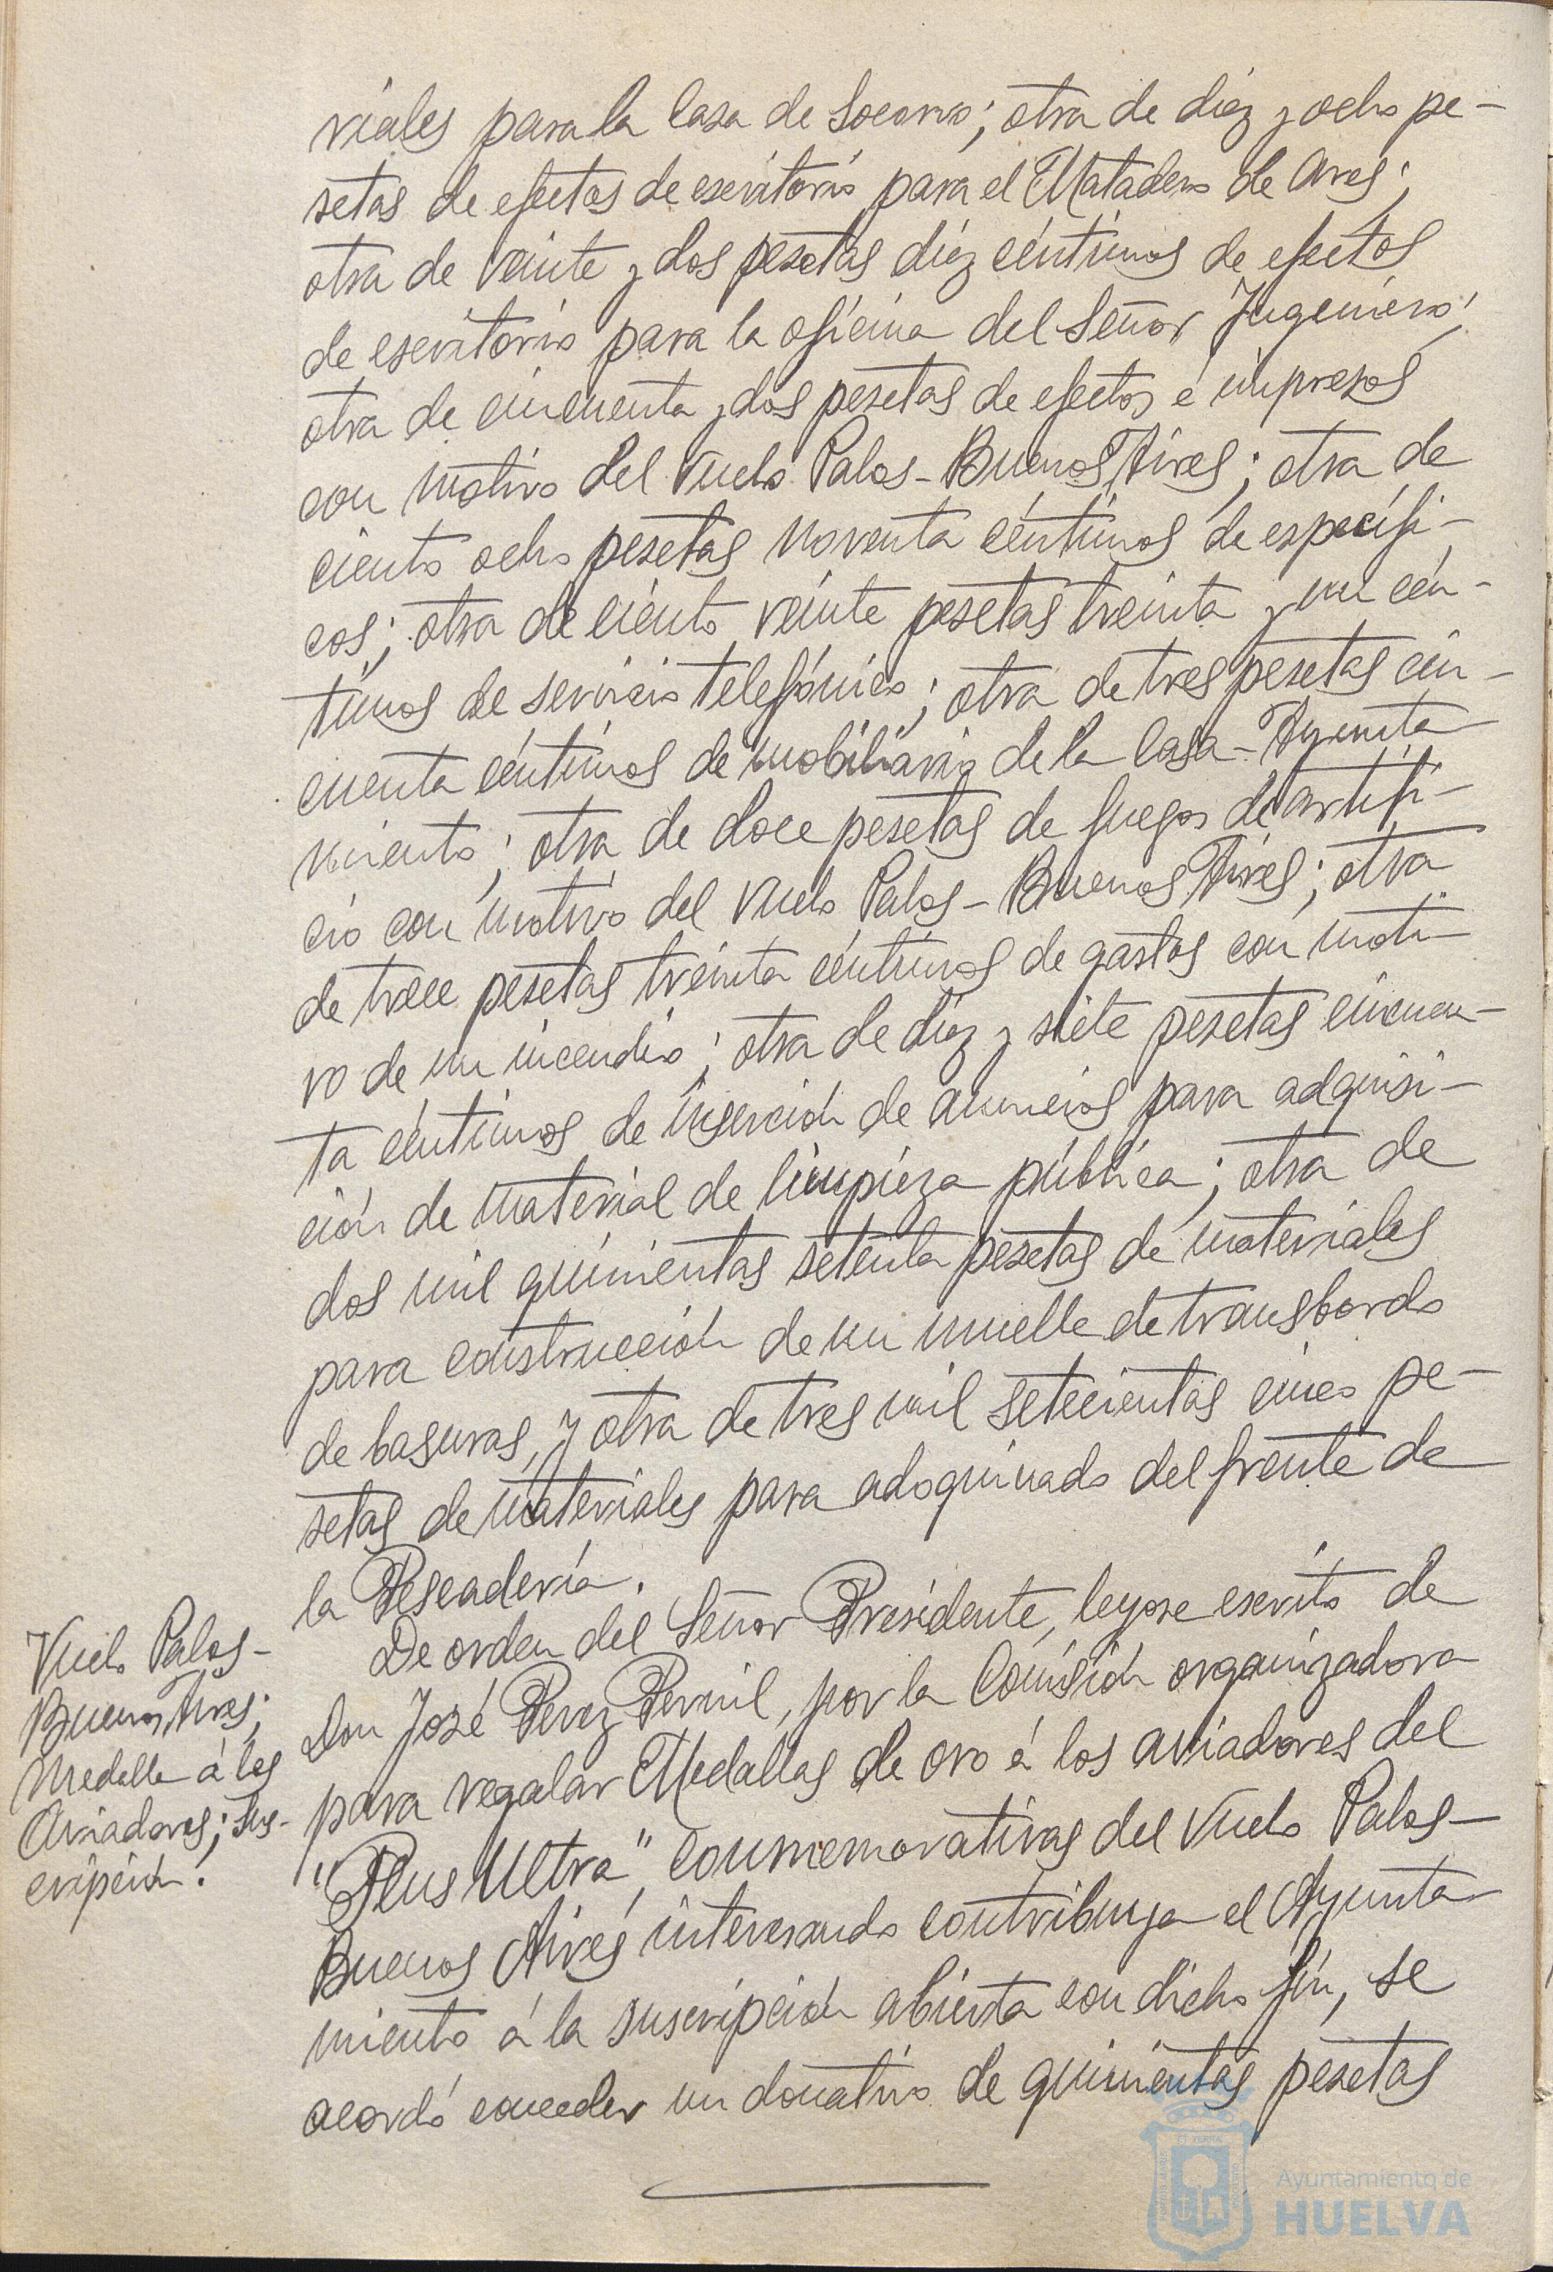 riales para la Casa de Socorro; otra de diez y ocho pe-
setas de efectos de escritorio para el Matadero de Aves;
otra de veinte y dos pesetas diez céntimos de efectos
de escritorio para la oficina del Señor Ingeniero;
otra de cincuenta y dos pesetas de efectos é impresos
con motivo del Vuelo Palos-Buenos Aires; otra de
ciento ocho pesetas noventa céntimos de específi-
cos; otra de ciento veinte pesetas treinta y un cén-
timos de servicio telefónico; otra de tres pesetas cin-
cuenta céntimos de mobiliario de la Casa-Ayunta
miento; otra de doce pesetas de fuegos de artifi-
cio con motivo del Vuelo Palos-Buenos Aires; otra
de trece pesetas treinta céntimos de gastos con moti-
vo de un incendio; otra de diez y siete pesetas cincuen-
ta céntimos de inserción de anuncios para adquisi-
ción de material de limpieza pública; otra de
dos mil quinientas setenta pesetas de materiales
para construcción de un muelle de transbordo
de basuras, y otra de tres mil setecientas cinco pe-
setas de materiales para adoquinado del frente de
la Pescadería.
Vuelo Palos-
Buenos Aires;
Medalla á los
Aviadores; Sus-
cripción.
De orden del Señor Presidente, leyose escrito de
Don José Perez Pernil, por la Comisión organizadora
para regalar Medallas de oro á los aviadores del
"Plus Ultra", conmemorativas del Vuelo Palos-
Buenos Aires interesando contribuya el Ayunta-
miento á la suscripción abierta con dicho fin, se
acordó conceder un donativo de quinientas pesetas
Ayuntamiento de
HUELVA